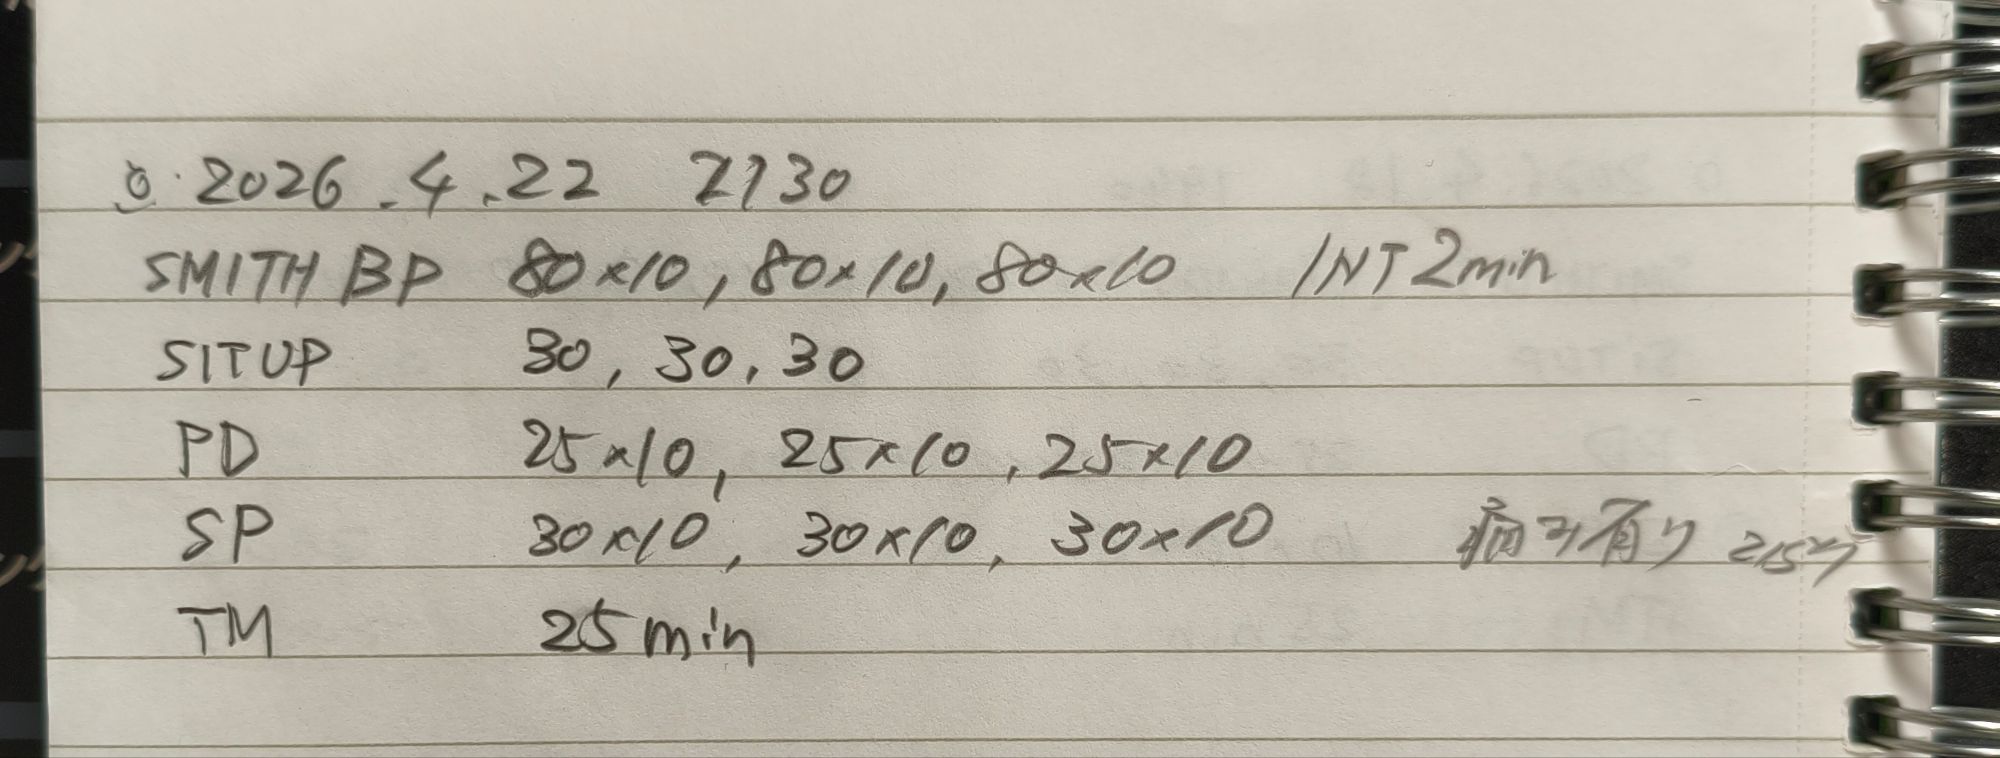 2026.4.22 2130
SMITH BP 80×10, 80×10, 80×10 INT 2min
SITUP 30, 30, 30
PD 25×10, 25×10, 25×10
SP 30×10, 30×10, 30×10 有り
TM 25min